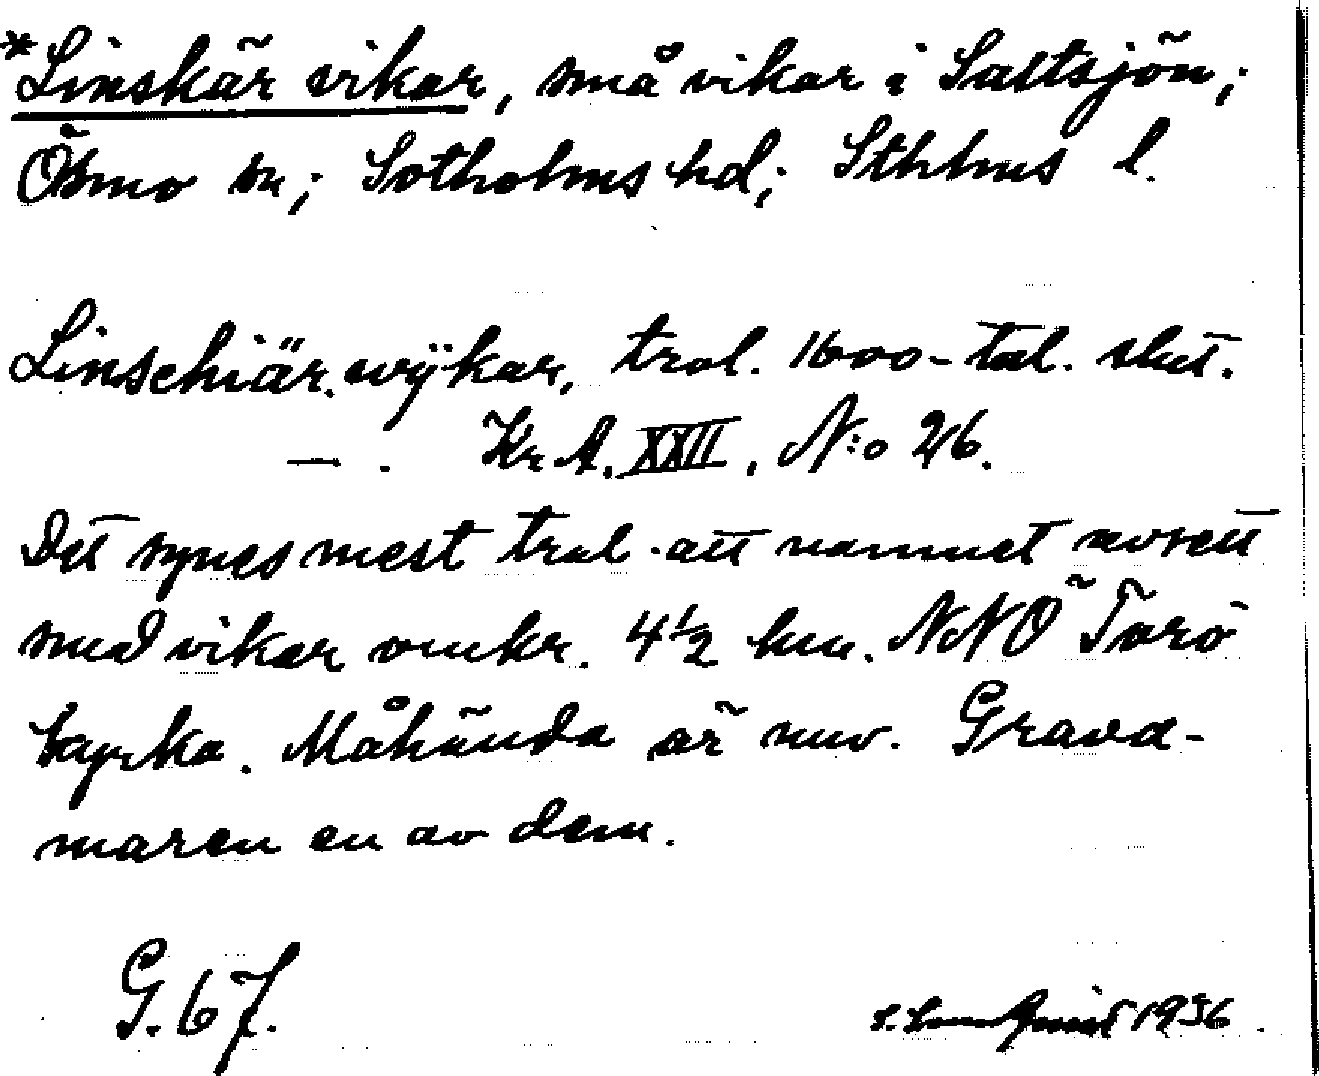 *Linskär vikar, små vikar i Saltsjön;
Ösmo sn; Sotholms hd; Sthlms l.
Linschiär wÿkar, trol. 1600-tal. slut.
— . Kr A. XXII, N:o 26.
Det synes mest trol. att namnet avsett
små vikar omkr. 4½ km. NNÖ Torö
kyrka. Måhända är nuv. Gravamaren en av dem.
G. 67.
1936.